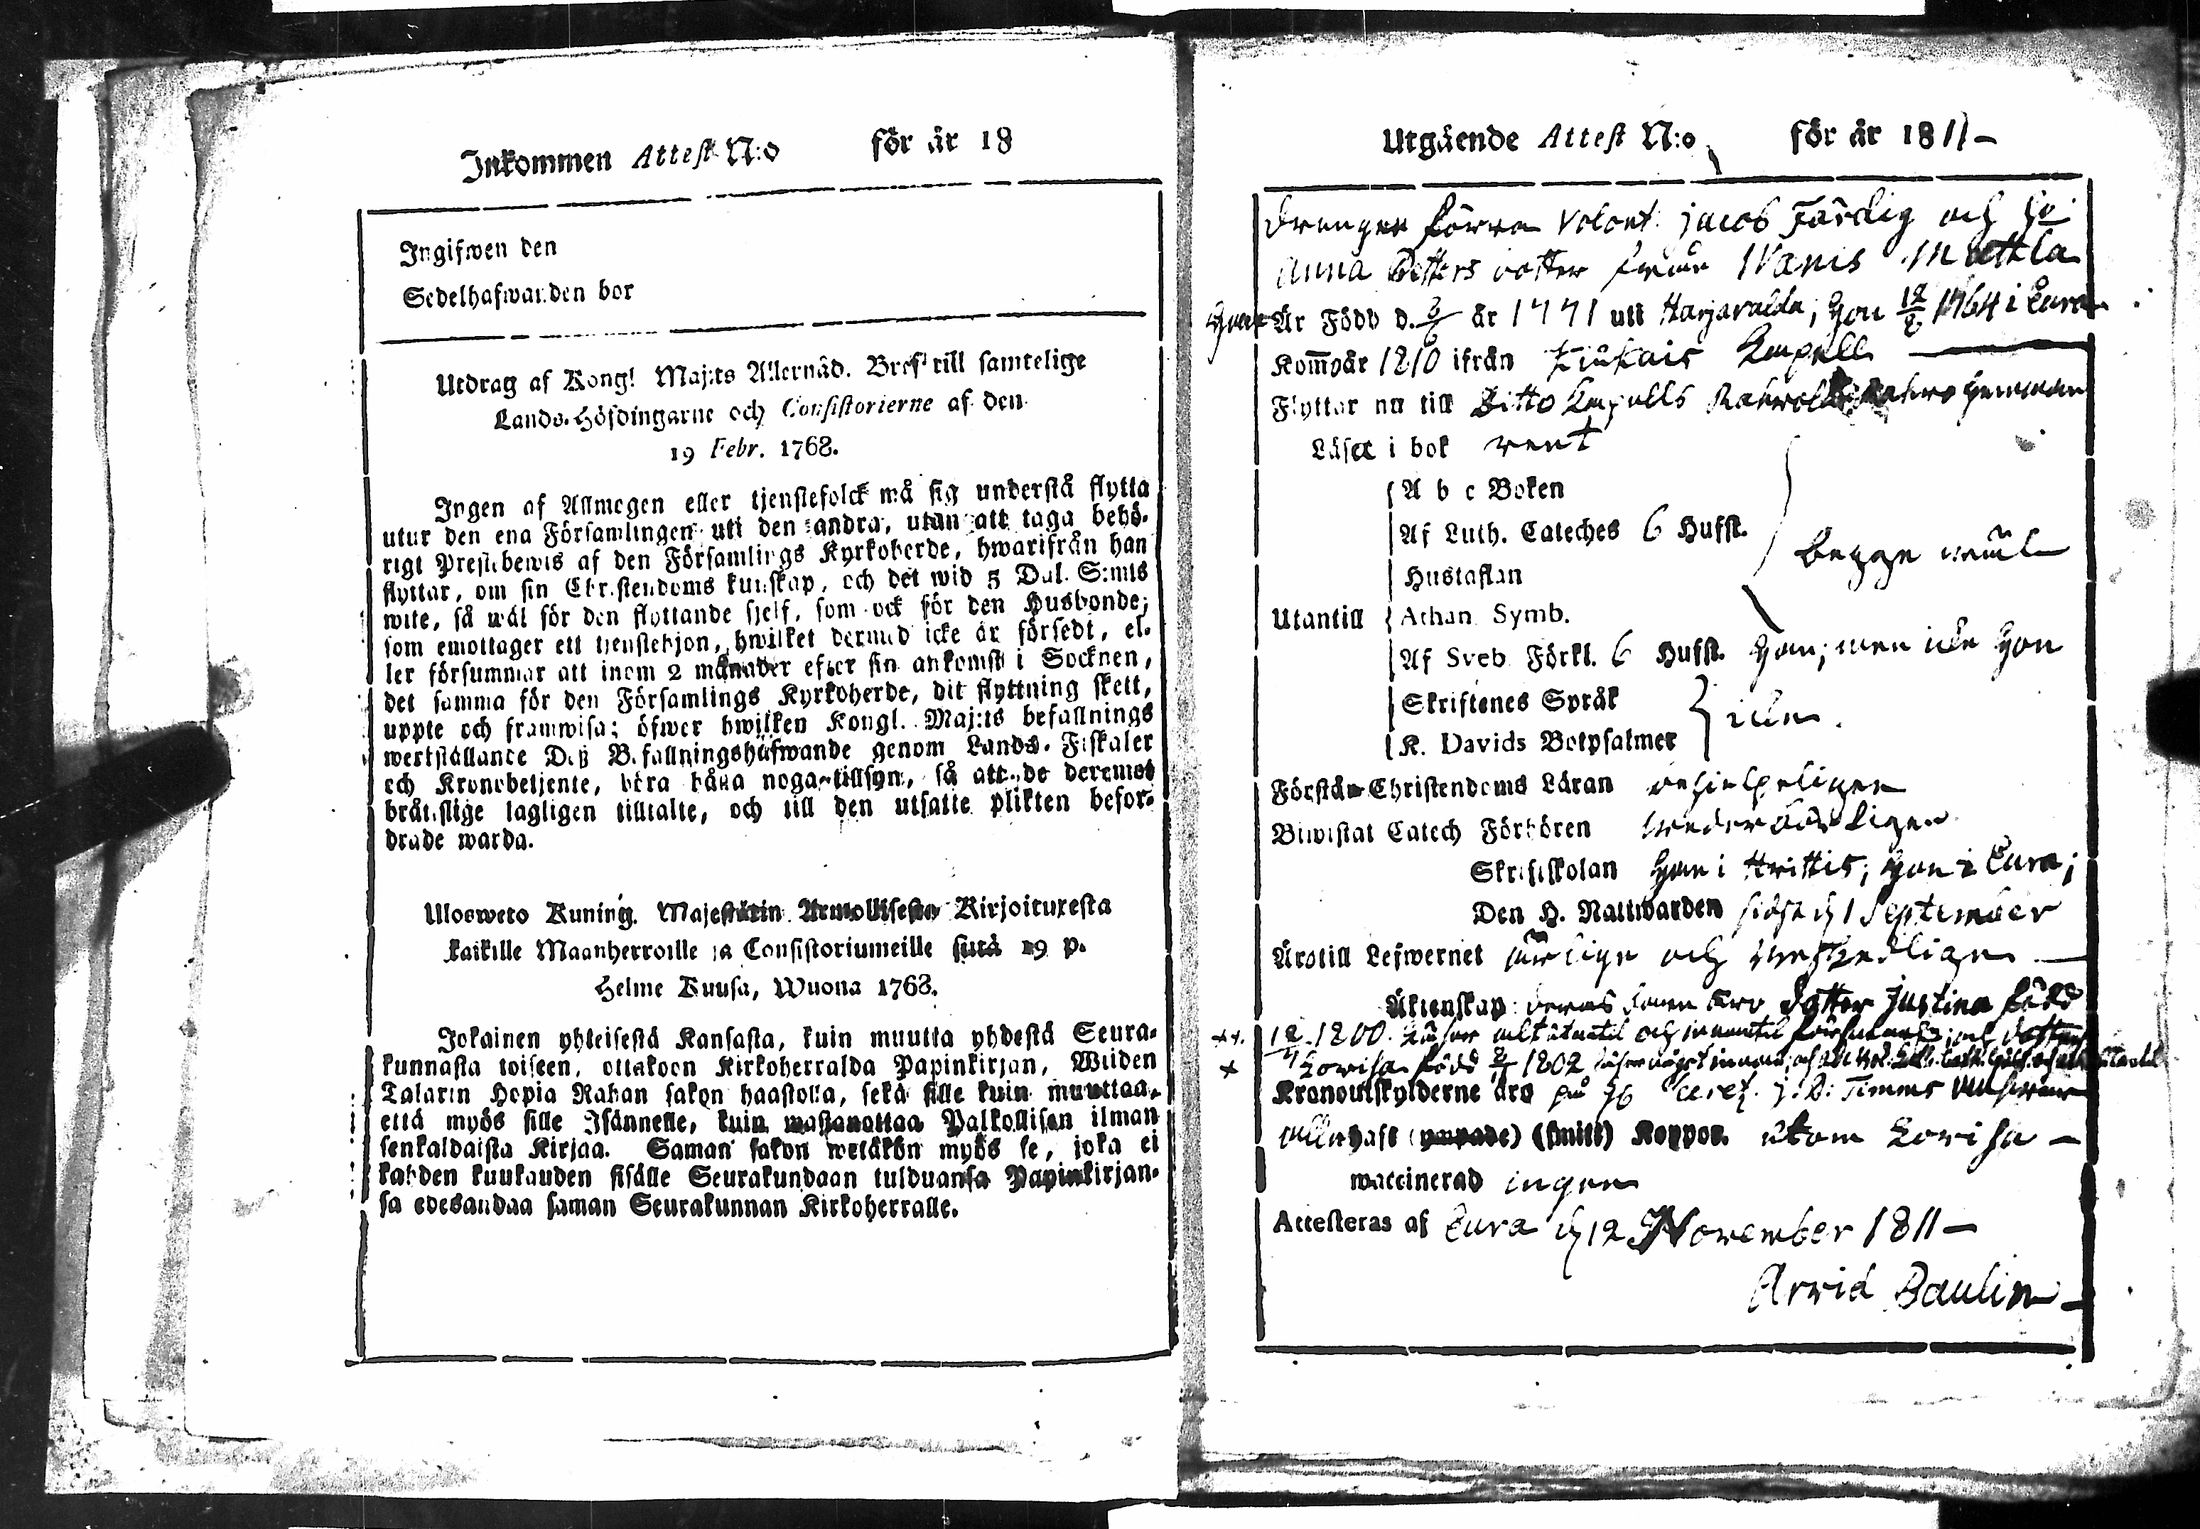 Inkommen Attest N:o för år 18
Ingifwen den
Sedelhafwanden bor
Utdrag af Kongl. Maj:ts Allernåd. Bref till samtelige
Lands-Höfdingarne och Consistorierne af den
19 Febr. 1768.
Ingen af Allmogen eller tjenstefolck må sig understå flytta
utur den ena Församlingen uti den andra, utan att taga behö-
rigt Prestebewis af den Församlings Kyrkoherde, hwarifrån han
flyttar, om sin Christendoms kunskap, och det wid 5 Dal. S:mts
wite, så wäl för den flyttande sjelf, som ock för den Husbonde,
som emottager ett tjenstehjon, hwilket dermed icke är försedt, el-
ler försummar att inom 2 månader efter sin ankomst i Socknen,
det samma för den Församlings Kyrkoherde, dit flyttning skett,
uppte och framwisa; öfwer hwilken Kongl. Maj:ts befallnings
werkställande Deß Befallningshafwande genom Lands-Fiskaler
och Kronobetjente, böra hålla noga tillsyn, så att de deremot
brätslige lagligen tilltalte, och till den utsatte plikten befor-
drade warda.
Ulosweto Kuning. Majestätin Armollisesta Kirjoituxesta
kaikille Maanherroille ja Consistoriumeille siitä 19 p.
Helme Kuusa, Wuona 1768.
Jokainen yhteisestä Kansasta, kuin muutta yhdestä Seura-
kunnasta toiseen, ottakoon Kirkoherralda Papinkirjan, Wiiden
Talarin Hopia Rahan sakon haastolla, sekä sille kuin muuttaa,
että myös sille Isännelle, kuin wastanottaa Palkollisen ilman
senkaldaista Kirjaa. Saman sakon wetäkön myös se, joka ei
kahden kuukauden sisälle Seurakundaan tulduansa Papinkirjan-
sa edesandaa saman Seurakunnan Kirkoherralle.
Utgående Attest N:o för år 1811 —
Drengen förra Volont. Jacob Färdig och
Anna dotter från
Är Född d. år 1771 uti Harjavalda; hon 12/8 1764 i Eura
Kom̄o år 1810 ifrån Kiukais Kapell
Flyttar nu till Ditto Kapells
Läser i bok rent
A b c Boken
Af Luth. Cateches 6 Hufst.
Hustaflan
begge
Utantill Athan. Symb.
Af Sveb. Förkl. 6 Hufst. Han; men icke Hon
Skriftenes Språk
K. Davids Botpsalmer
icke.
Förstår Christendoms Läran
Biwistat Catech Förhören
Skriftskolan Han i Hon i Eura;
Den H. Nattwarden sidst d. 1 September
Äro till Lefwernet ärlige och
Äktenskap; deras äro Dotter Justina född
12 1800. utantil och innantil
Lovisa född 1802
Kronoutskylderne äro på
haft (ympade) (smitt) Koppor. utom Lovisa —
waccinerad ingen
Attesteras af Eura d. 12 November 1811 —
Arvid Paulin